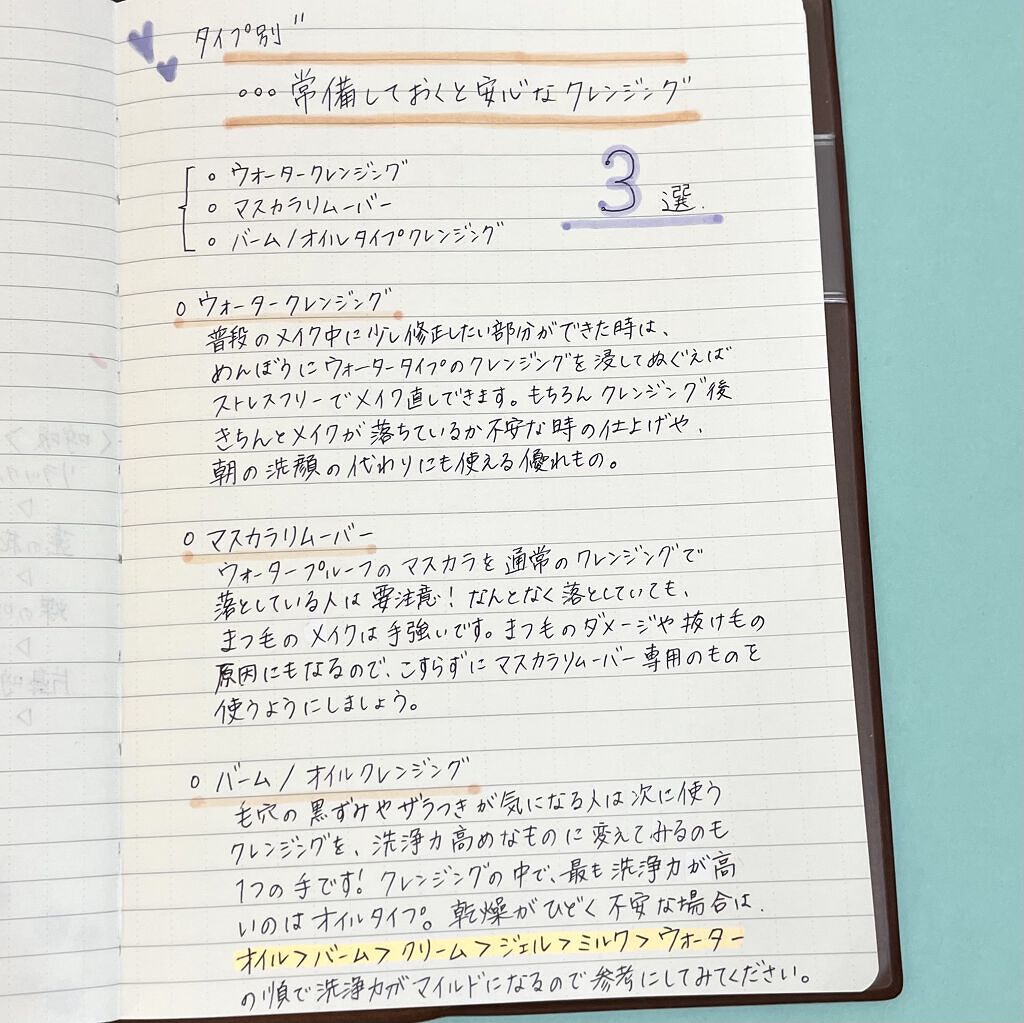 タイプ別"
○○○常備しておくと安心なクレンジング
3選.
○ ウォータークレンジング
○ マスカラリムーバー
○ バーム/オイルタイプクレンジング
○ ウォータークレンジング
普段のメイク中に少し修正したい部分ができた時は、
めんぼうにウォータータイプのクレンジングを浸してぬぐえば
ストレスフリーでメイク直しできます。もちろんクレンジング後
きちんとメイクが落ちているか不安な時の仕上げや、
朝の洗顔の代わりにも使える優れもの。
○ マスカラリムーバー
ウォータープルーフのマスカラを通常のクレンジングで
落としている人は要注意!なんとなく落としていても、
まつ毛のメイクは手強いです。まつ毛のダメージや抜けもの
原因にもなるので、こすらずにマスカラリムーバー専用のものを
使うようにしましょう。
○ バーム/オイルクレンジング
毛穴の黒ずみやザラつきが気になる人は次に使う
クレンジングを、洗浄力高めなものに変えてみるのも
1つの手です!クレンジングの中で、最も洗浄力が高
いのはオイルタイプ。乾燥がひどく不安な場合は、
オイル>バーム>クリーム>ジェル>ミルク>ウォーター
の順で洗浄力がマイルドになるので参考にしてみてください。